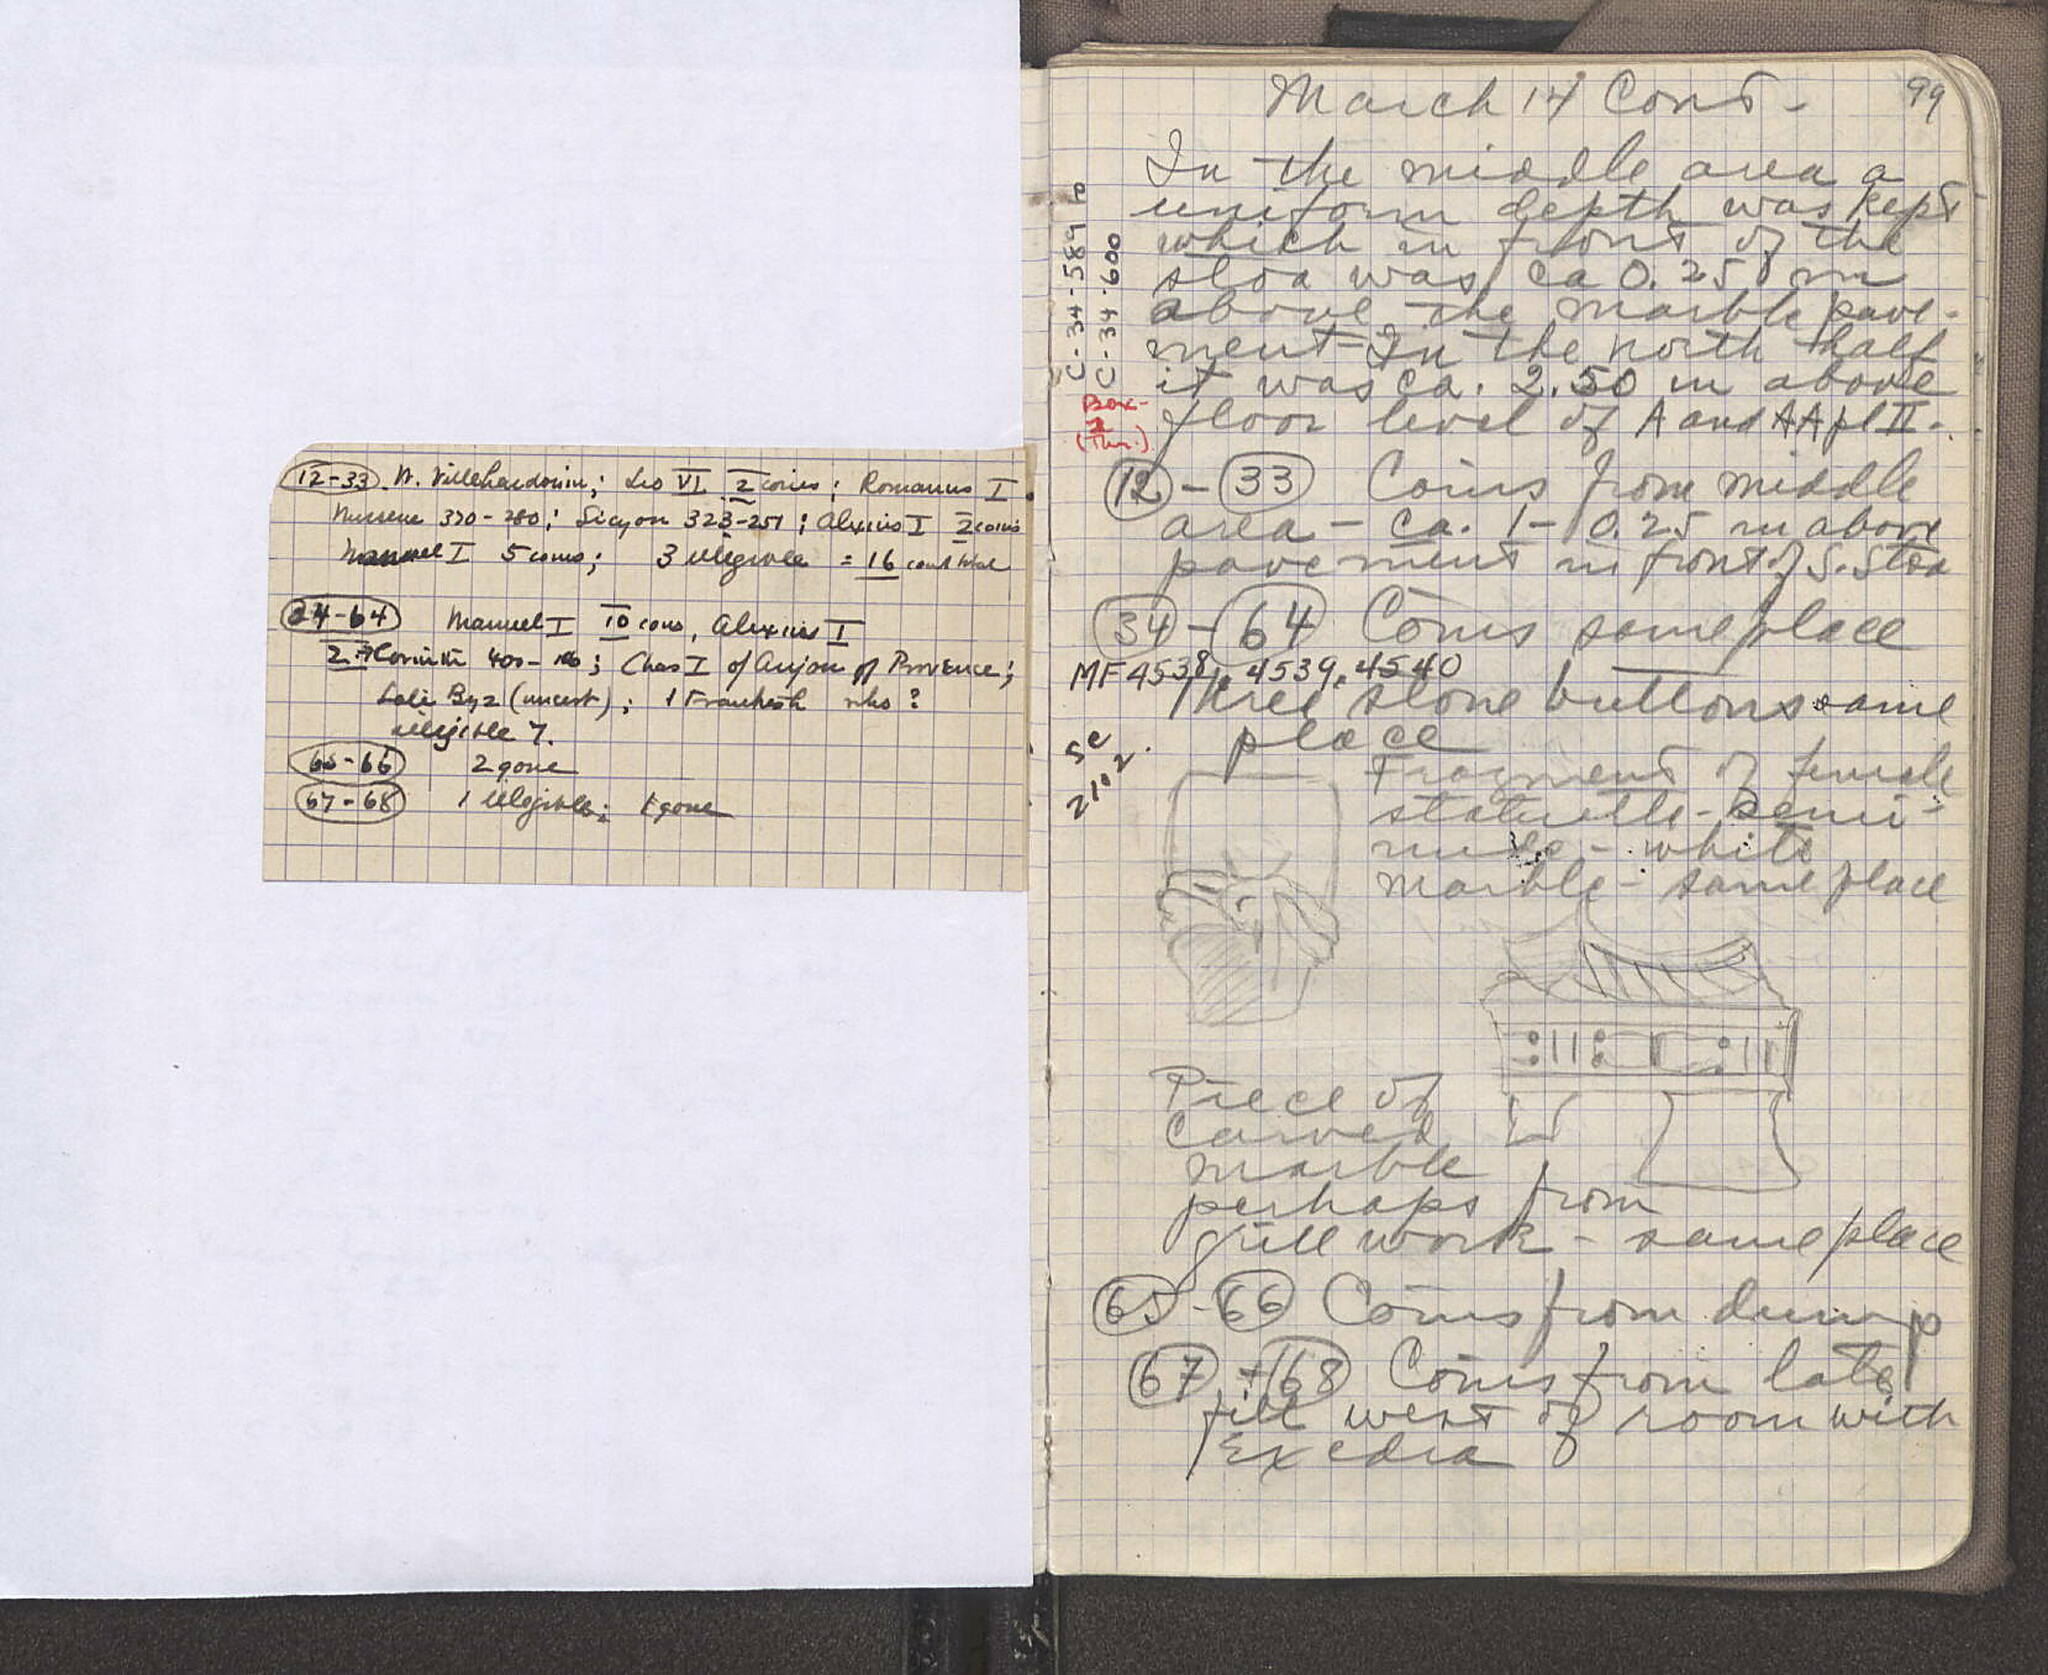 12-33. W. Villehardouin; Leo VI 2 coins; Romanus I.
370-280; Sicyon 323-251; Alexius I 2 coins
Manuel I 5 coins; 3 illegible = 16 total
34-64 Manuel I 10 coins, Alexius I
2 Corinth 400-146; Chas I of Anjou of Provence;
Late Byz (uncert); 1 Frankish who?
illegible 7.
65-66 2 gone
67-68 1 illegible; 1 gone
March 14 Cont- 99
In the middle area a
uniform depth was kept
which in front of the
stoa was ca 0.25 m
above the marble pave-
ment - In the north half
it was ca. 2.50 m above
floor level of A and AA pl II.
C-34-589 to
C-34-600
Box-
1
12 - 33 Coins from middle
area - ca. 1 - 0.25 m above
pavement in front of S. Stoa
34 - 64 Coins same place
MF 4538, 4539, 4540
Three stone buttons same
place
Fragment of female
statuette - semi-
nude - white
marble - same place
2102
Piece of
carved
marble
perhaps from
grill work - same place
65 - 66 Coins from dump
67 + 68 Coins from late
fill west of room with
Exedra